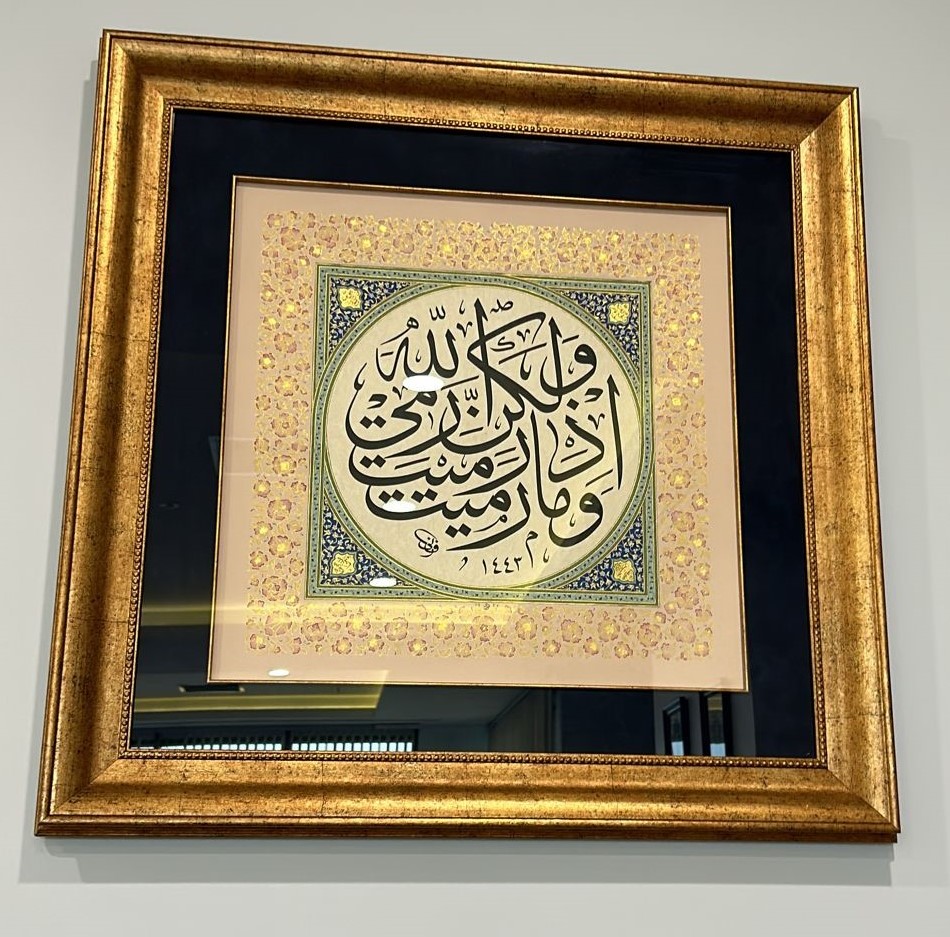 وما رميت
إذ رميت
ولكن الله رمى
١٤٤٣